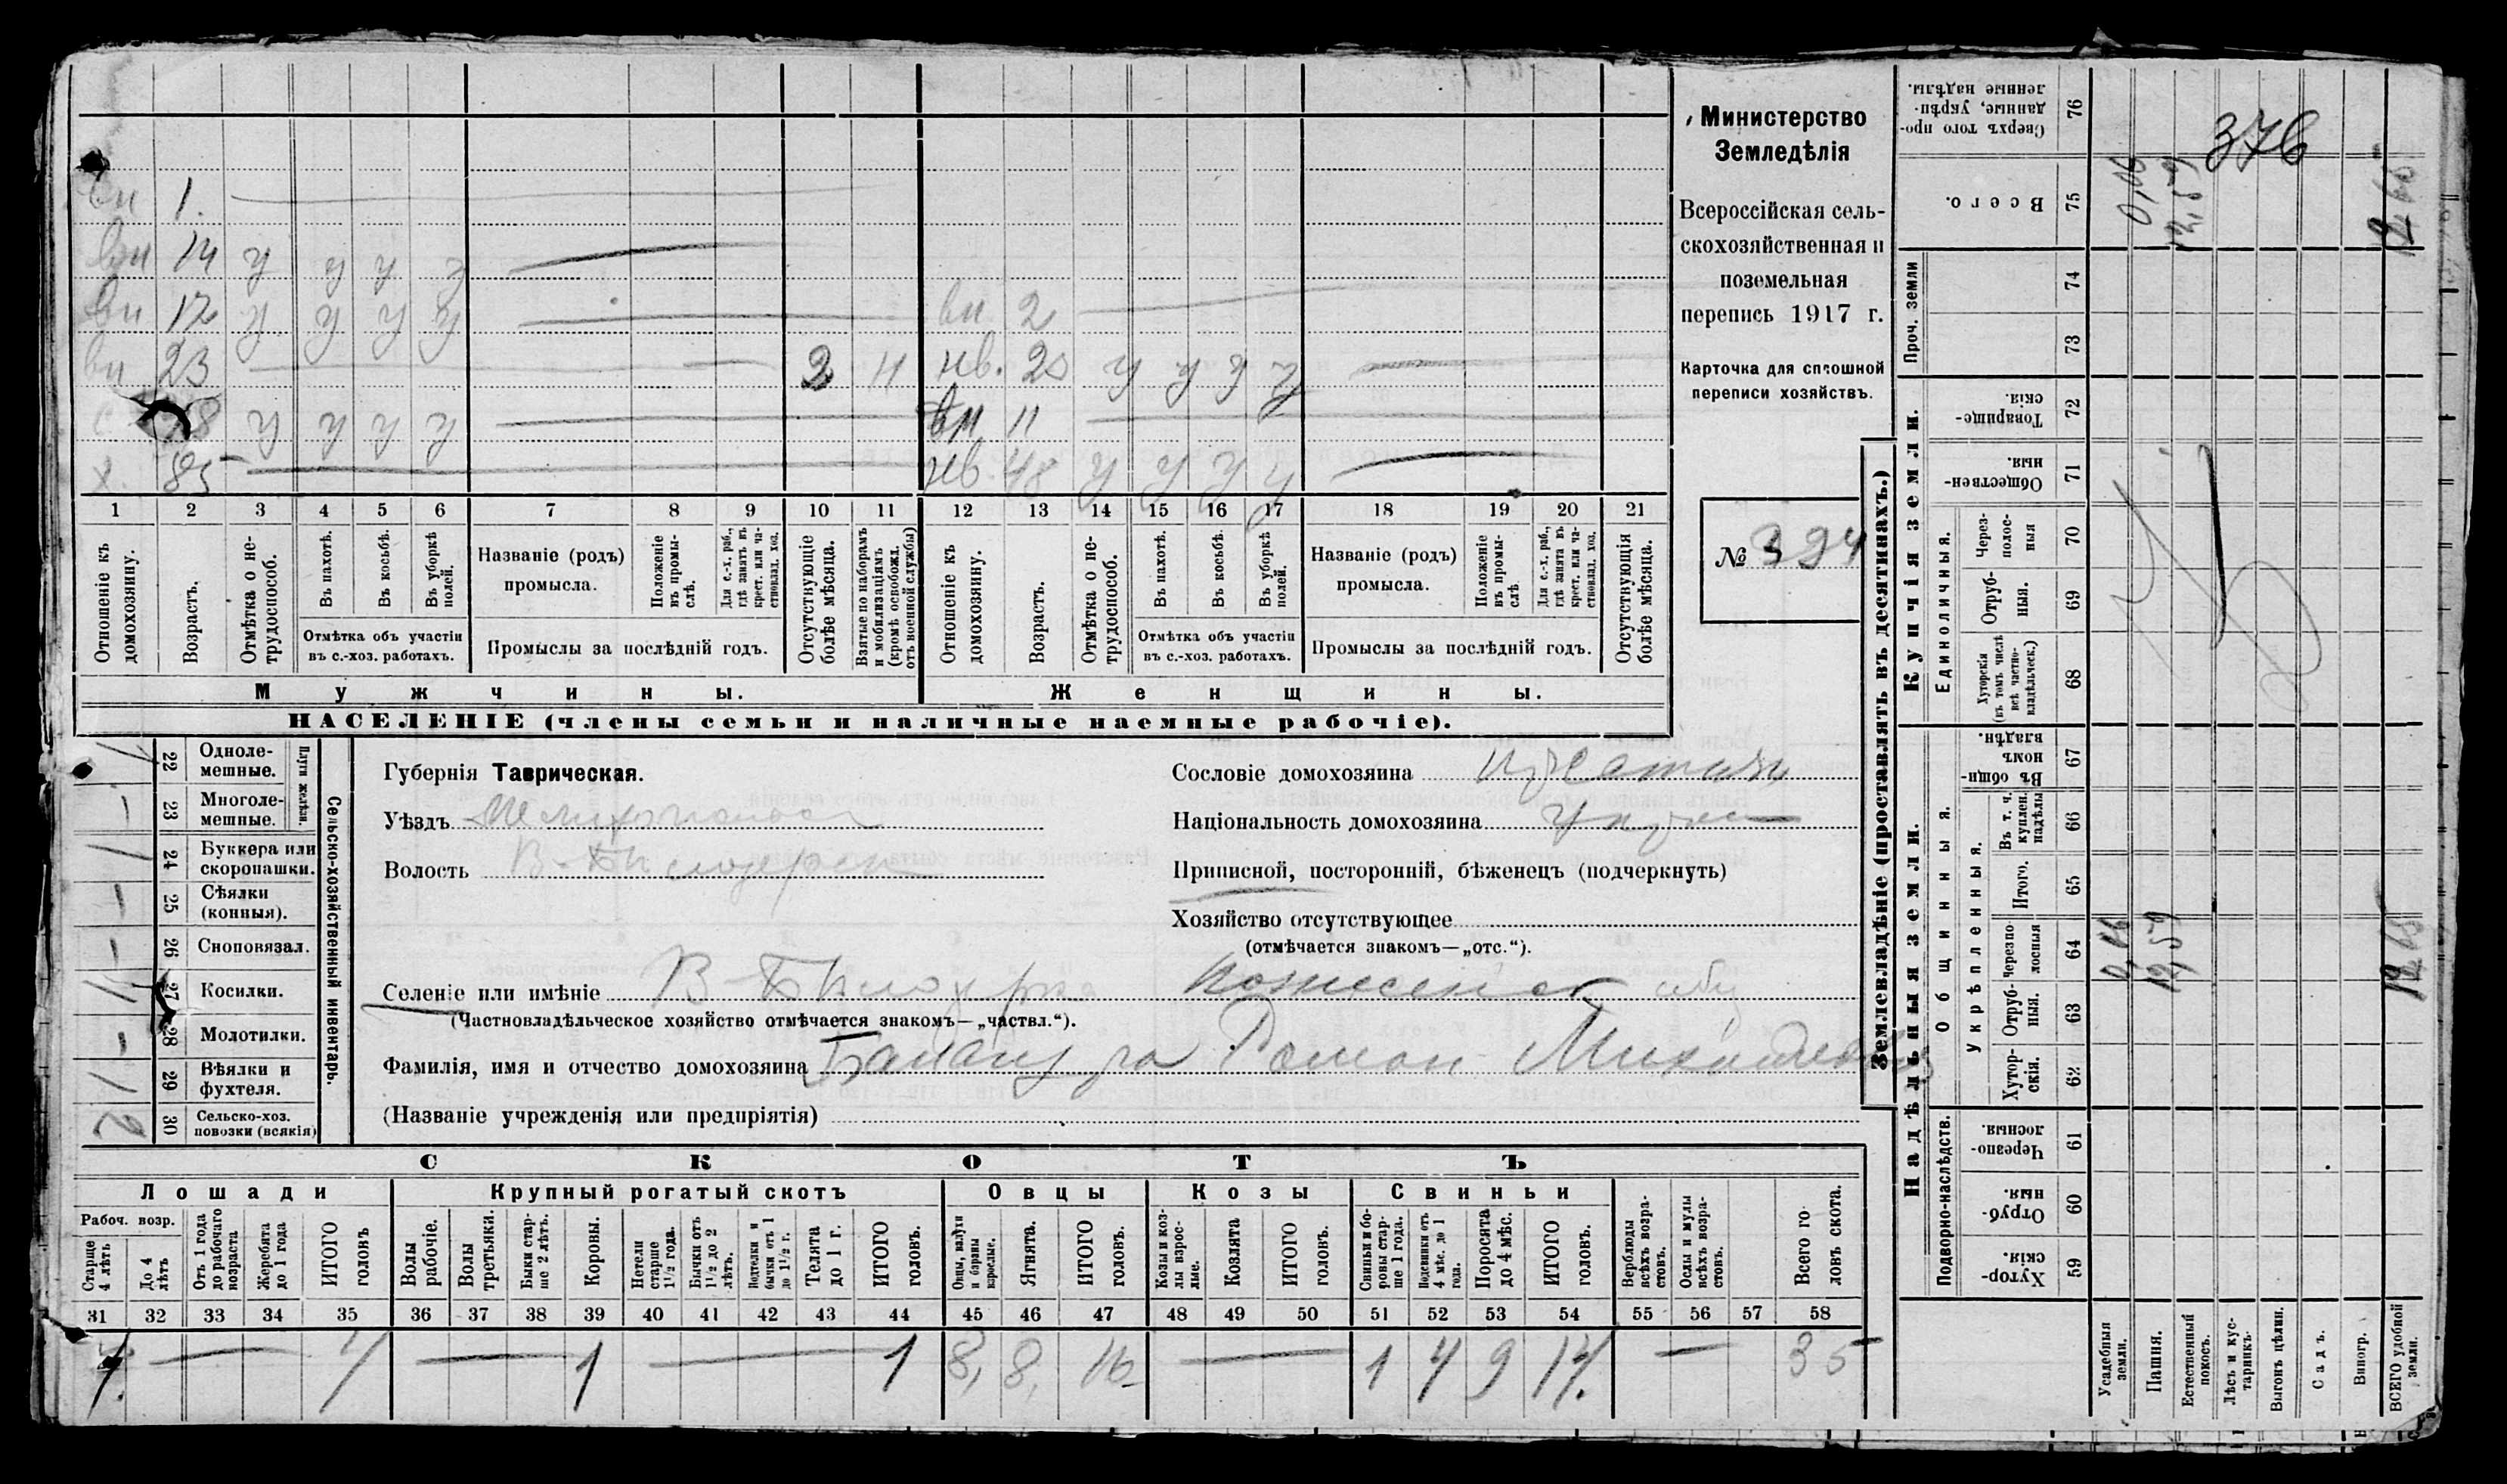 376
Министерство
Земледѣлія
Всероссійская сель-
скохозяйственная и
поземельная
перепись 1917 г.
Карточка для сплошной
переписи хозяйствъ.
№ 394
вн 1.
вн 14 у у у у
вн 12 у у у у
вн 2
вн 23 2 11
нв. 20 у у у у
с 48 у у у у
вн 11
х. 85
нв. 48 у у у у
1 2 3 4 5 6 7 8 9 10 11 12 13 14 15 16 17 18 19 20 21
Отношеніе къ домохозяину.
Возрастъ.
Отмѣтка о не-трудоспособ.
Въ пахотѣ.
Въ косьбѣ.
Въ уборкѣ полей.
Отмѣтка объ участіи
въ с.-хоз. работахъ.
Названіе (родъ)
промысла.
Положеніе въ промы-слѣ.
Для с.-х. раб., гдѣ занятъ въ крест. или ча-стновлад. хоз.
Промыслы за послѣдній годъ.
Отсутствующіе болѣе мѣсяца.
Взятые по наборамъ и мобилизаціямъ (кромѣ освобожд. отъ военной службы)
Отношеніе къ домохозяину.
Возрастъ.
Отмѣтка о не-трудоспособ.
Въ пахотѣ.
Въ косьбѣ.
Въ уборкѣ полей.
Отмѣтка объ участіи
въ с.-хоз. работахъ.
Названіе (родъ)
промысла.
Положеніе въ промы-слѣ
Для с.-х. раб., гдѣ занята въ крест. или ча-стновлад. хоз.
Промыслы за послѣдній годъ.
Отсутствующія болѣе мѣсяца.
Мужчины.
Женщины.
НАСЕЛЕНІЕ (члены семьи и наличные наемные рабочіе).
Сельско-хозяйственный инвентарь.
Плуги желѣзн.
1 22 Одноле-мешные.
— 23 Многоле-мешные.
1 24 Буккера или скоропашки.
— 25 Сѣялки (конныя).
— 26 Сноповязал.
27 Косилки.
— 28 Молотилки.
1 29 Вѣялки и фухтеля.
2 30 Сельско-хоз. повозки (всякія)
Губернія Таврическая.
Уѣздъ Мелитопольск
Волость В-Бѣлозерск
Селеніе или имѣніе В-Бѣлозерка
(Частновладѣльческое хозяйство отмѣчается знакомъ—„частвл.“).
Фамилія, имя и отчество домохозяина Романъ Михайлович
(Названіе учрежденія или предпріятія)
Сословіе домохозяина
Національность домохозяина
Приписной, посторонній, бѣженецъ (подчеркнуть)
Хозяйство отсутствующее
(отмѣчается знакомъ—„отс.“).
СКОТЪ
Лошади
Крупный рогатый скотъ
Овцы
Козы
Свиньи
Рабоч. возр.
Старше 4 лѣтъ
До 4 лѣтъ
Отъ 1 года до рабочаго возраста
Жеребята до 1 года
ИТОГО головъ
Волы рабочіе.
Волы третьяки.
Быки стар-ше 2 лѣтъ.
Коровы.
Нетели старше 1½ года.
Бычки отъ 1½ до 2 лѣтъ.
Подтелки и бычки отъ 1 до 1½ г.
Телята до 1 г.
ИТОГО головъ.
Овцы, валухи и бараны взрослые.
Ягнята.
ИТОГО головъ.
Козы и коз-лы взрос-лые.
Козлята
ИТОГО головъ.
Свиньи и бо-ровы стар-ше 1 года.
Подсвинки отъ 4 мѣс. до 1 года.
Поросята до 4 мѣс.
ИТОГО головъ.
Верблюды всѣхъ возра-стовъ.
Ослы и мулы всѣхъ возра-стовъ.
Всего го-ловъ скота.
31 32 33 34 35 36 37 38 39 40 41 42 43 44 45 46 47 48 49 50 51 52 53 54 55 56 57 58
4. 4 1 1 8, 8, 16 1 4 9 14. 35
Землевладѣніе (проставлять въ десятинахъ.)
Надѣльныя земли.
Купчія земли.
Проч. земли
Сверхъ того про-данные, укрѣп-ленные надѣлы. 76
Всего. 75 0,06 12,59 12,65
74
73
Товарище-скія. 72
Обществен-ныя. 71
Единоличныя.
Через-полос-ныя 70
Отруб-ныя. 69
Хуторскія (въ томъ числѣ всѣ частно-владѣльческ.) 68
Общинныя.
Въ общин-номъ владѣн. 67
Укрѣпленныя.
Въ т. ч. куплен. надѣлы 66
Итого. 65
Черезпо-лосныя 64 0,06 12,59 12,65
Отруб-ныя. 63
Хутор-скія. 62
Подворно-наслѣдств.
Черезпо-лосныя. 61
Отруб-ныя. 60
Хутор-скія. 59
Усадебныя земли.
Пашня.
Естественный покосъ.
Лѣсъ и кус-тарникъ.
Выгонъ цѣлин.
Садъ.
Виногр.
ВСЕГО удобной земли.